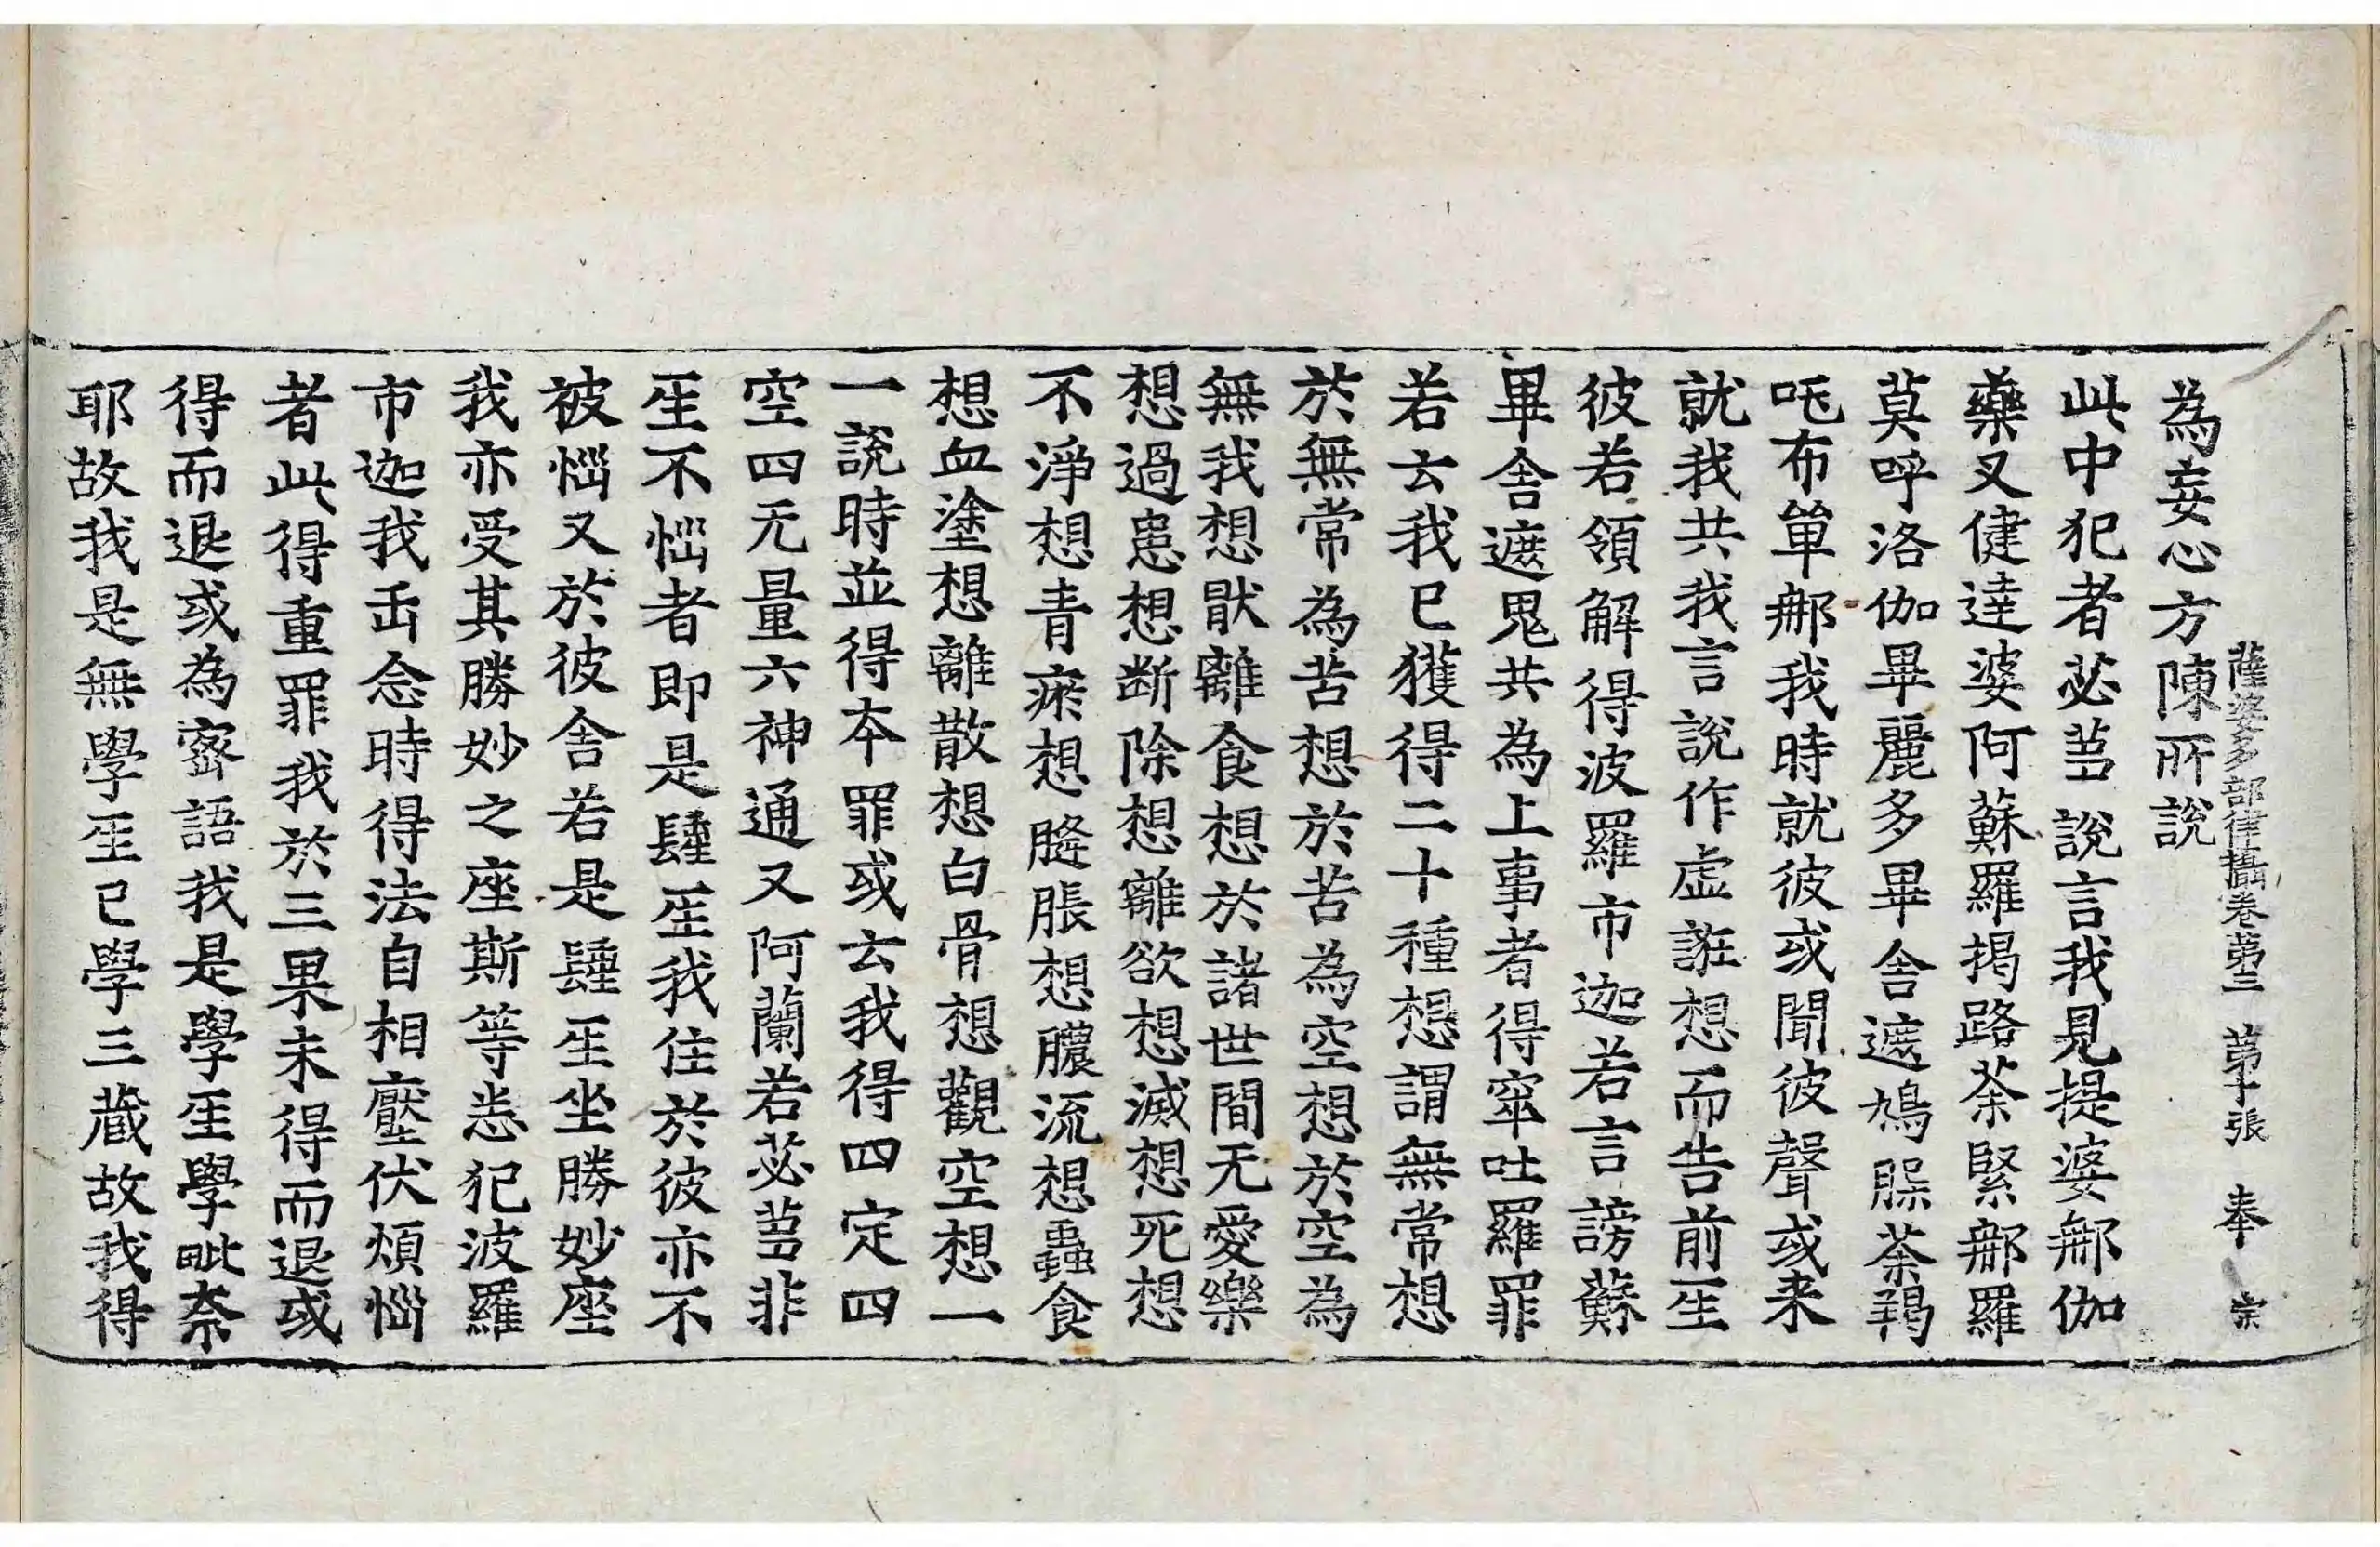 為妄心方陳所說
薩婆多部律攝卷第三　第十張　奉　宗
此中犯者苾芻說言我見提婆𨚗伽
藥叉健達婆阿蘇羅揭路荼緊𨚗羅
莫呼洛伽畢麗多畢舍遮鳩槃荼羯
吒布單𨚗我時就彼或聞彼聲或来
就我共我言說作虛誑想而告前生
彼若領解得波羅市迦若言謗蘇
畢舍遮鬼共為上事者得窣吐羅罪
若云我已獲得二十種想謂無常想
於無常為苦想於苦為空想於空為
無我想厭離食想於諸世間无愛樂
想過患想斷除想離欲想滅想死想
不淨想青瘀想膖脹想膿流想蟲食
想血塗想離散想白骨想觀空想一
一說時並得本罪或云我得四定四
空四无量六神通又阿蘭若苾芻非
生不惱者即是𨲽生我住於彼亦不
被惱又於彼舍若是𨲽生坐勝妙座
我亦受其勝妙之座斯等悉犯波羅
市迦我缶念時得法自相壓伏煩惱
者此得重罪我於三果未得而退或
得而退或為密語我是學生學毗奈
耶故我是無學生已學三藏故我得